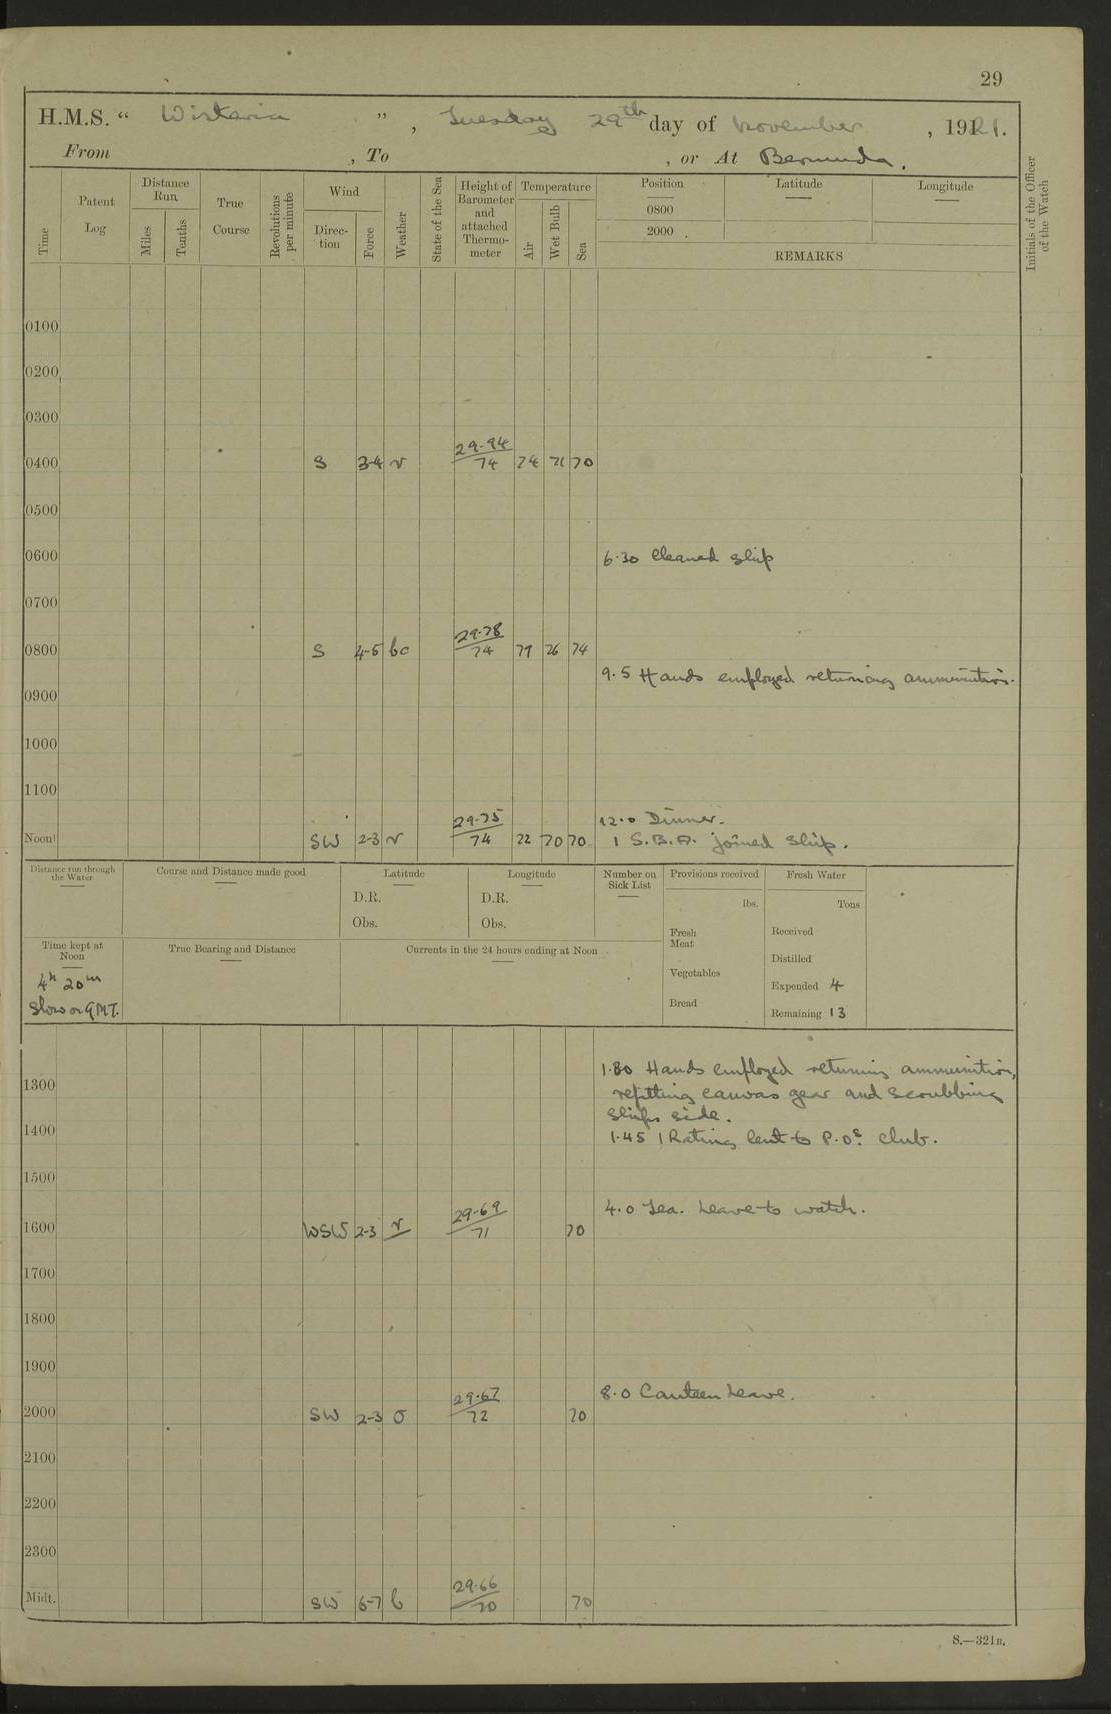 29
H.M.S. “ Wistaria ”, Tuesday 29th day of November, 1921.
From , To , or At Bermuda.
Time
Patent Log
Distance Run
Miles
Tenths
True Course
Revolutions per minute
Wind
Direc-tion
Force
Weather
State of the Sea
Height of Barometer and attached Thermo-meter
Temperature
Air
Wet Bulb
Sea
Position
0800
2000
Latitude
Longitude
REMARKS
Initials of the Officer of the Watch
0100
0200
0300
0400 S 3-4 r 29.94/74 74 71 70
0500
0600 6.30 Cleaned Ship
0700
0800 S 4-5 bc 29.78/74 77 76 74
9.5 Hands employed returning ammunition.
0900
1000
1100
12.0 Dinner.
Noon SW 2-3 r 29.75/74 72 70 70 1 S.B.A. joined Ship.
Distance run through the Water
Course and Distance made good
Latitude
D.R.
Obs.
Longitude
D.R.
Obs.
Number on Sick List
Provisions received
lbs.
Fresh Meat
Vegetables
Bread
Fresh Water
Tons
Received
Distilled
Expended 4
Remaining 13
Time kept at Noon
4h 20m
Slow on GMT.
True Bearing and Distance
Currents in the 24 hours ending at Noon
1.30 Hands employed returning ammunition,
1300 refitting canvas gear and scrubbing
ships side.
1400 1.45 1 Rating lent to P.Os. club.
1500
4.0 Tea. Leave to watch.
1600 WSW 2-3 r 29.69/71 70
1700
1800
1900
8.0 Canteen Leave.
2000 SW 2-3 o 29.67/72 70
2100
2200
2300
Midt. SW 6-7 b 29.66/70 70
S.—321B.